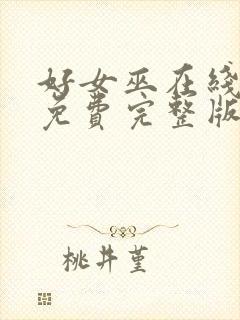 好女巫在线
免费完整版
桃井堇